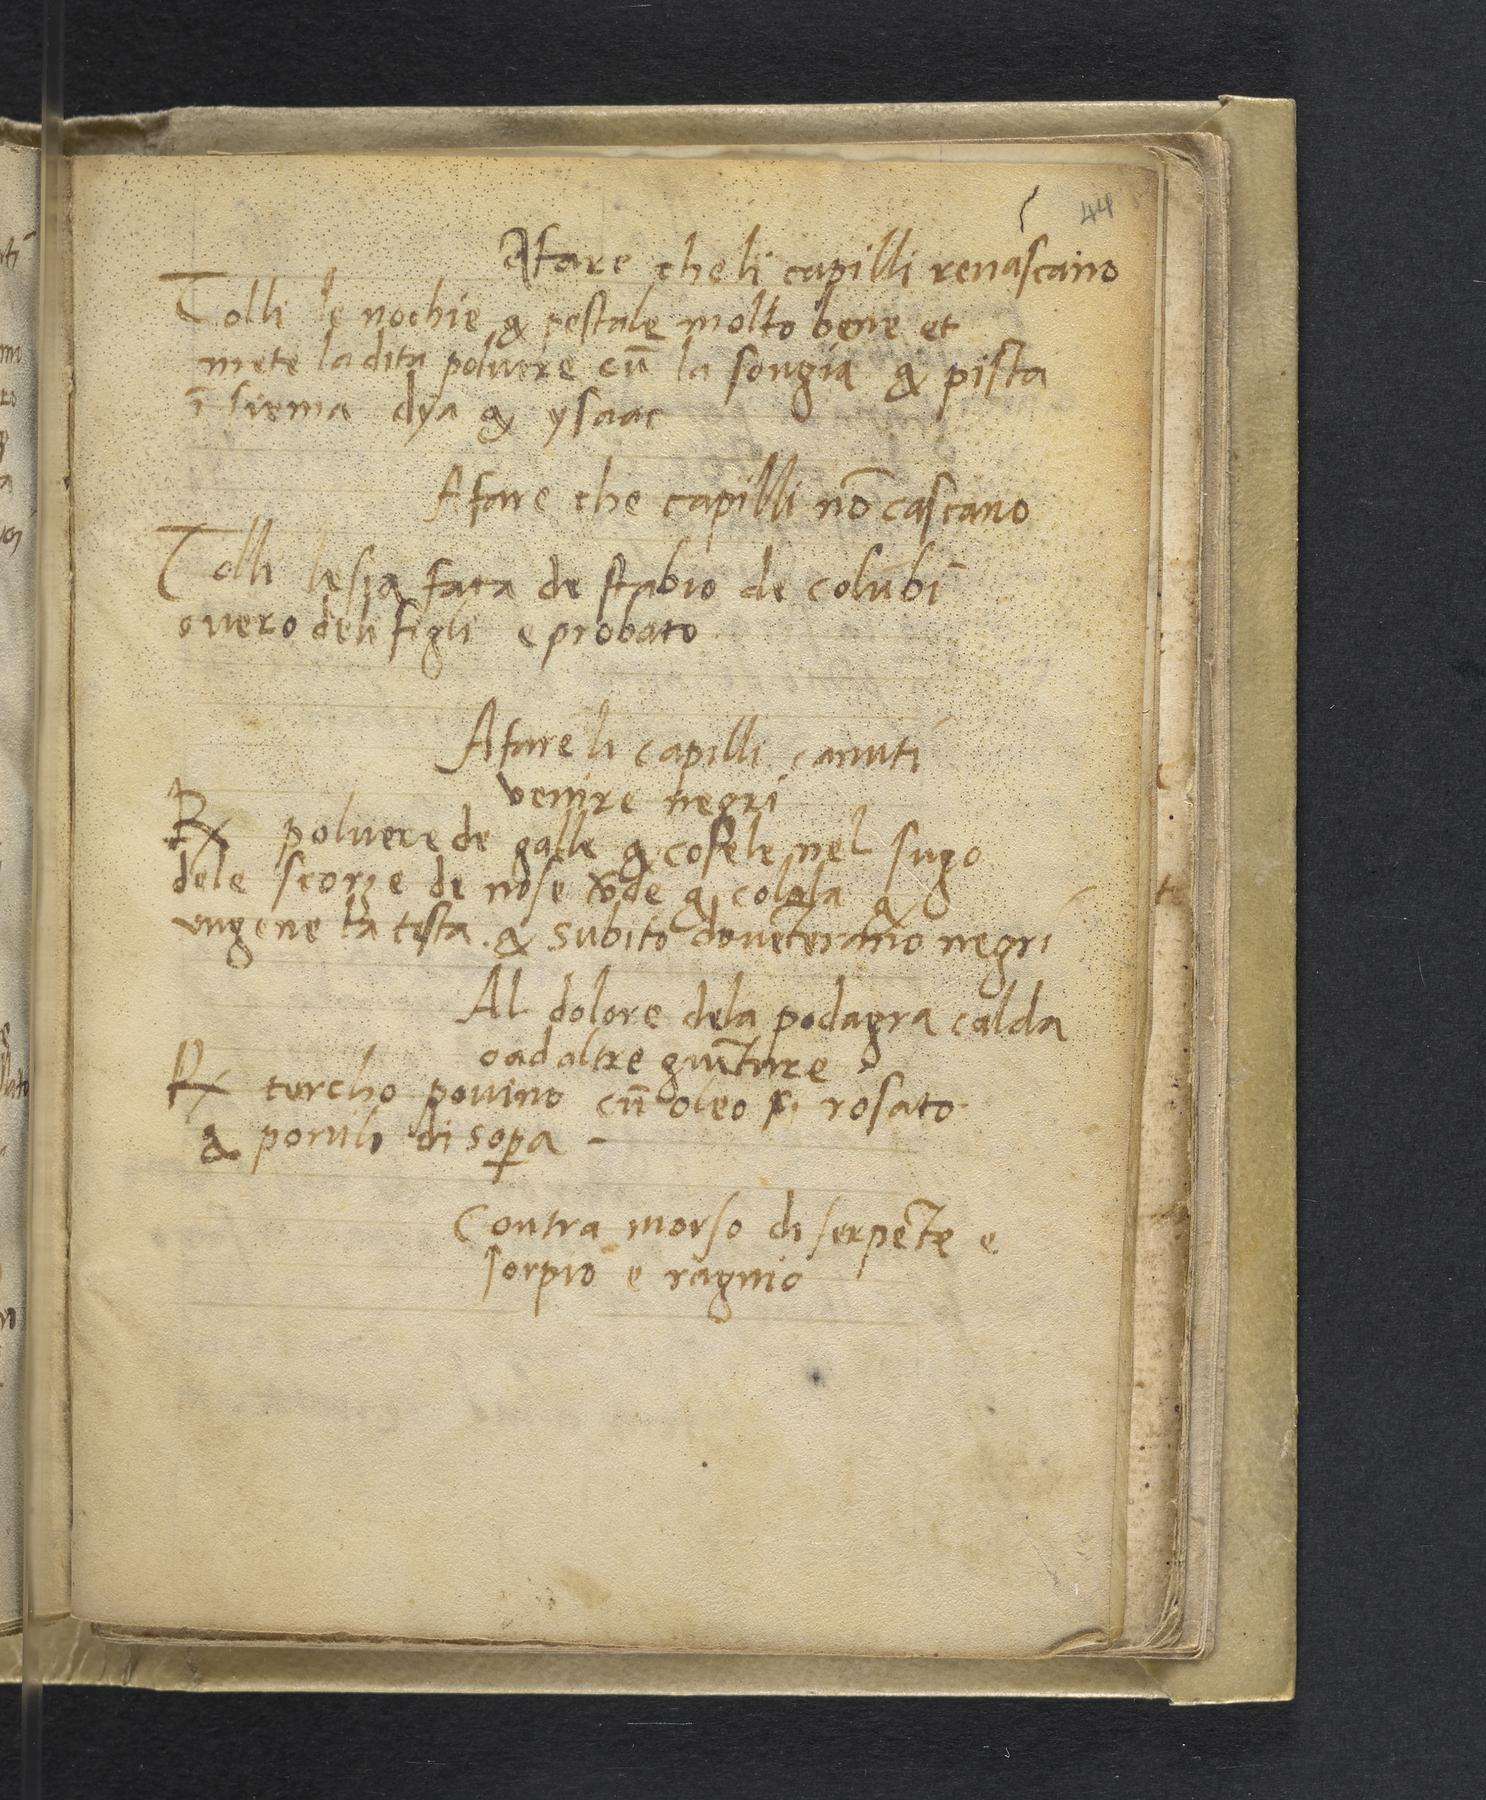 44
Afare che li capilli renascano
Tolli le nochie & pestale molto bene et
mete la dita poluere cū la songia & pista
ī siema dya & ysaac
Afare che capilli nō cascano
Tolli lesia fata de stabio de colūbi
ouero deli figli e probato
Afare li capilli canuti
venire negri
Rx poluere de galle & cosele nel sugo
dele scorze de nose v̄de & colala &
ungene la testa. & subito douēterāno negri
Al dolore dela podagra calda
o ad altre giunture
Rx turcho pouino cū oleo rosato
& poruili di sopa -
Contra morso di serpēte e
sorpio e ragnio